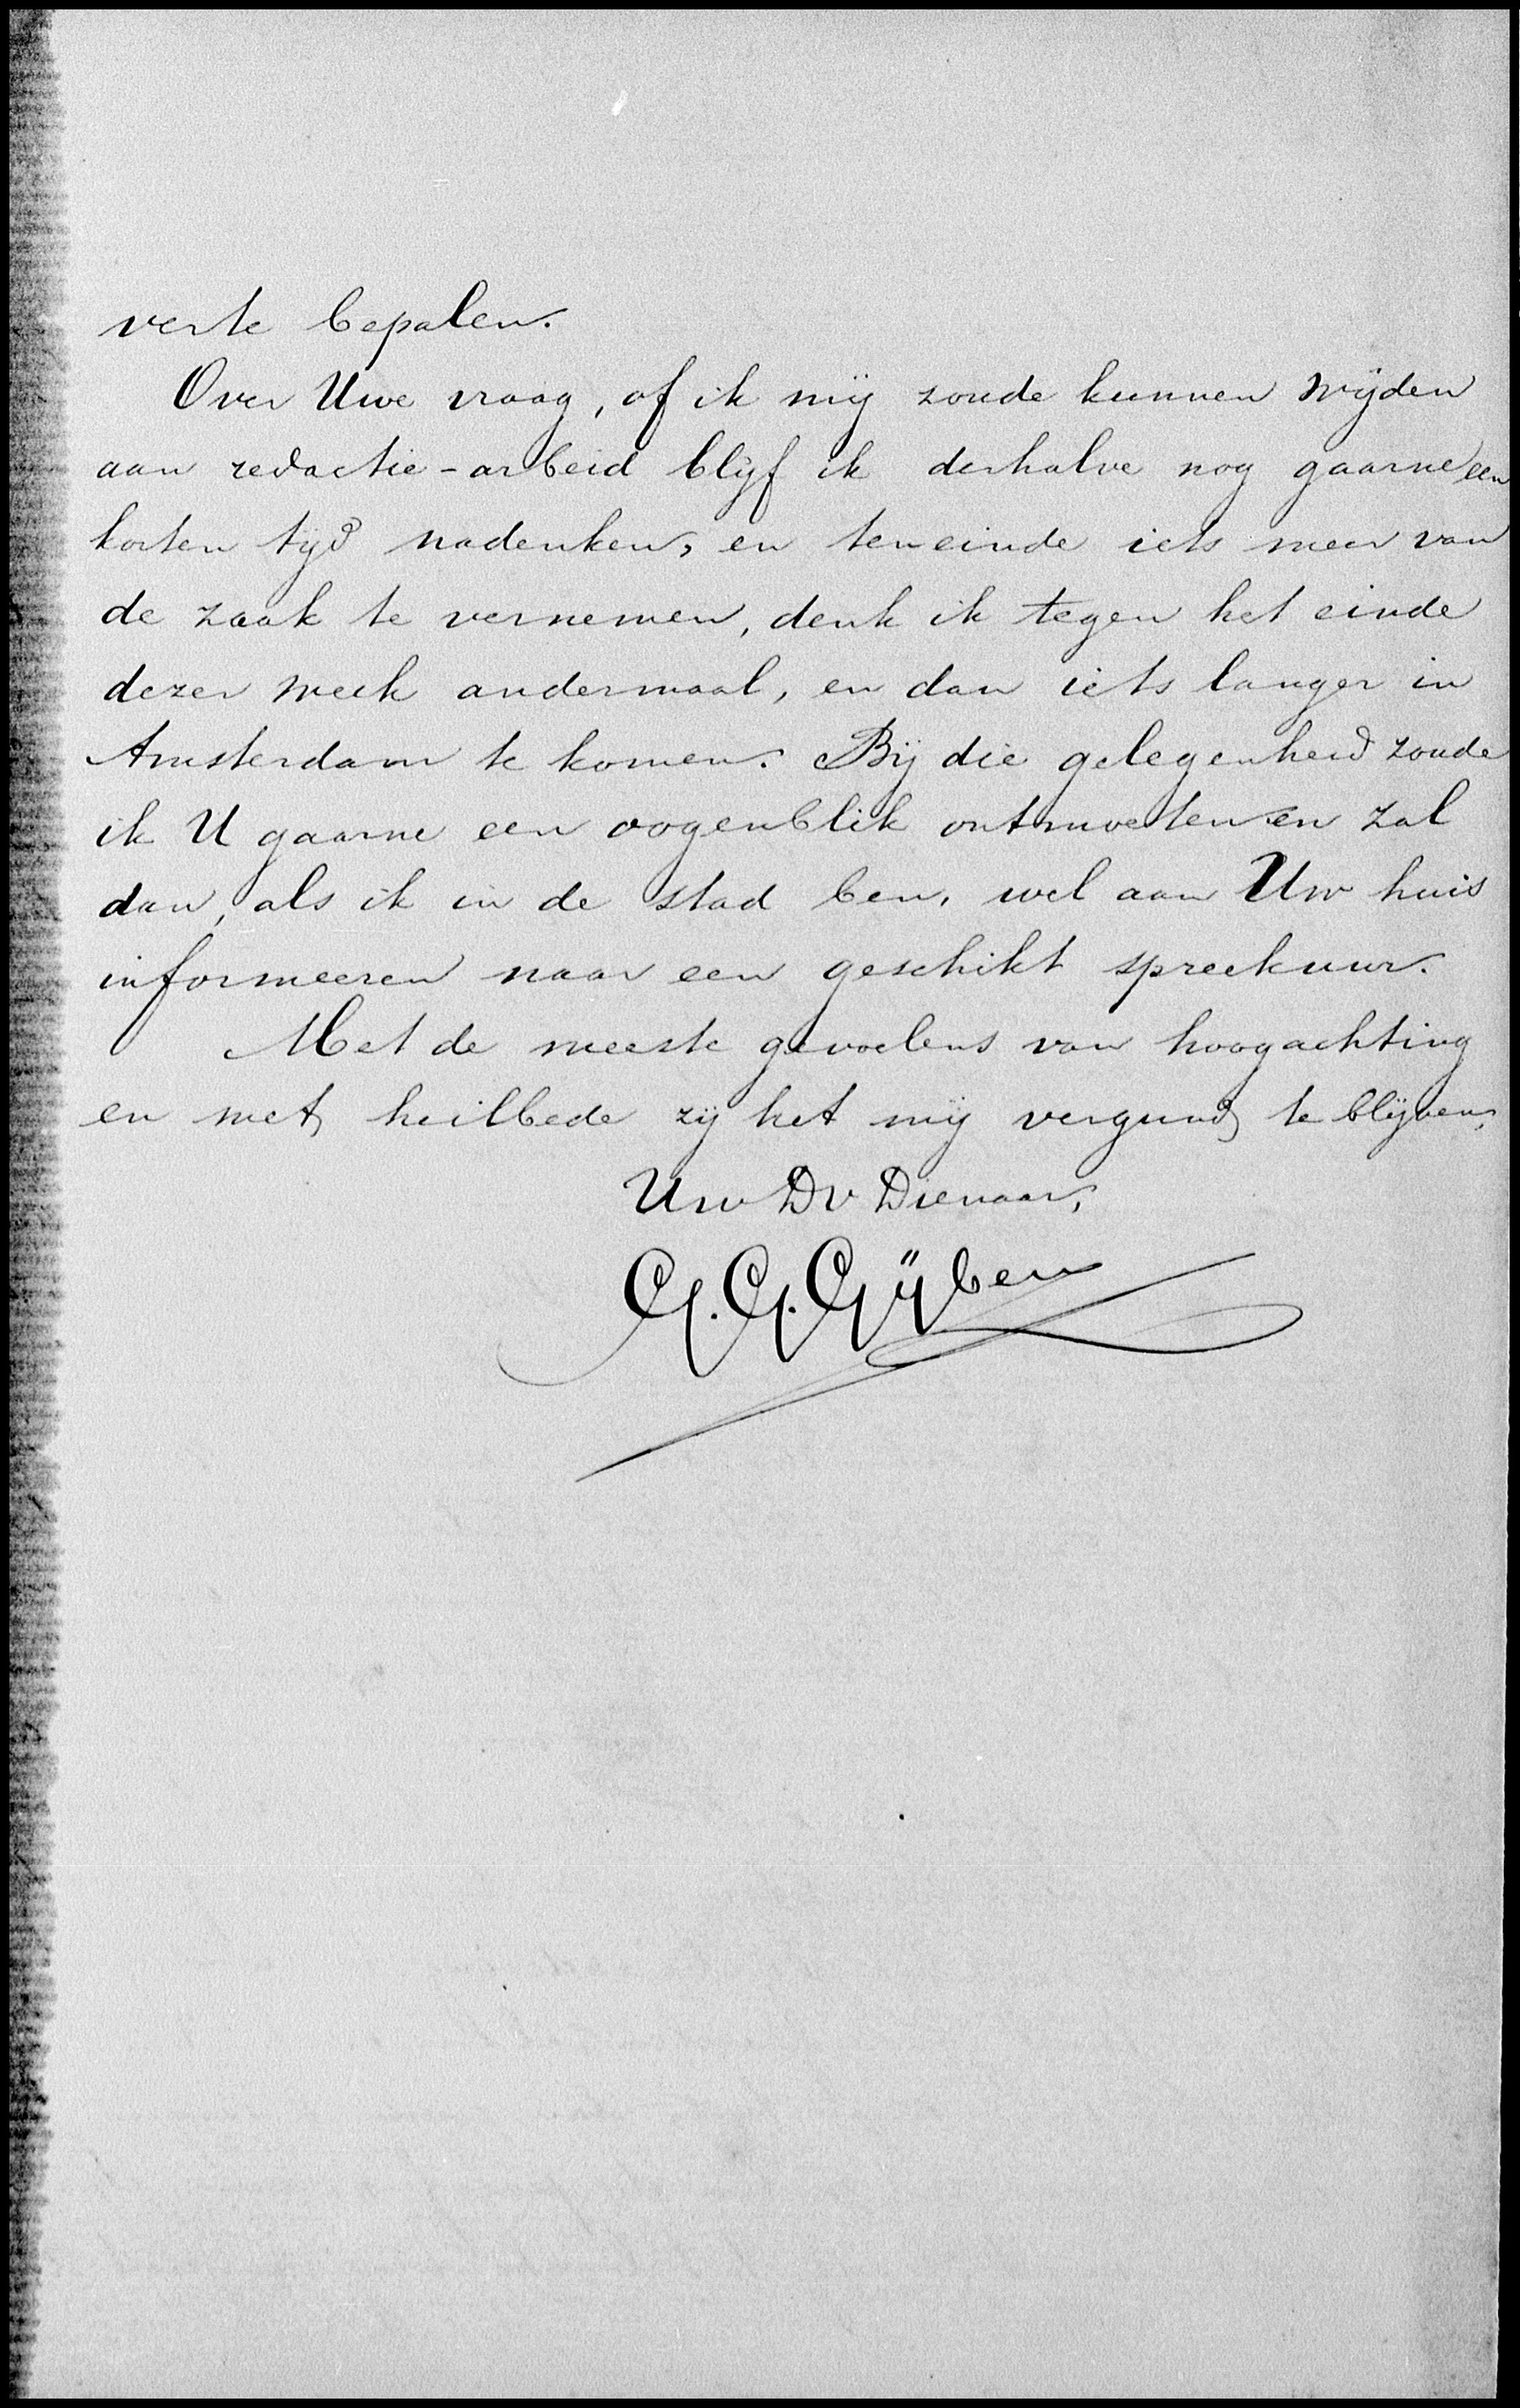 verte bepalen.
Over Uwe vraag, of ik mij zoude kunnen wijden
aan redactie-arbeid blijf ik derhalve nog gaarne een
korten tijd nadenken, en teneinde iets meer van
de zaak te vernemen, denk ik tegen het einde
dezer week andermaal, en dan iets langer in
Amsterdam te komen. Bij die gelegenheid zoude
ik U gaarne een oogenblik ontmoeten en zal
dan, als ik in de stad ben, wel aan Uw huis
informeeren naar een geschikt spreekuur.
Met de meeste gevoelens van hoogachting
en met heilbede zij het mij vergund te blijven,
Uw Dv Dienaar,
G. G. Gijben